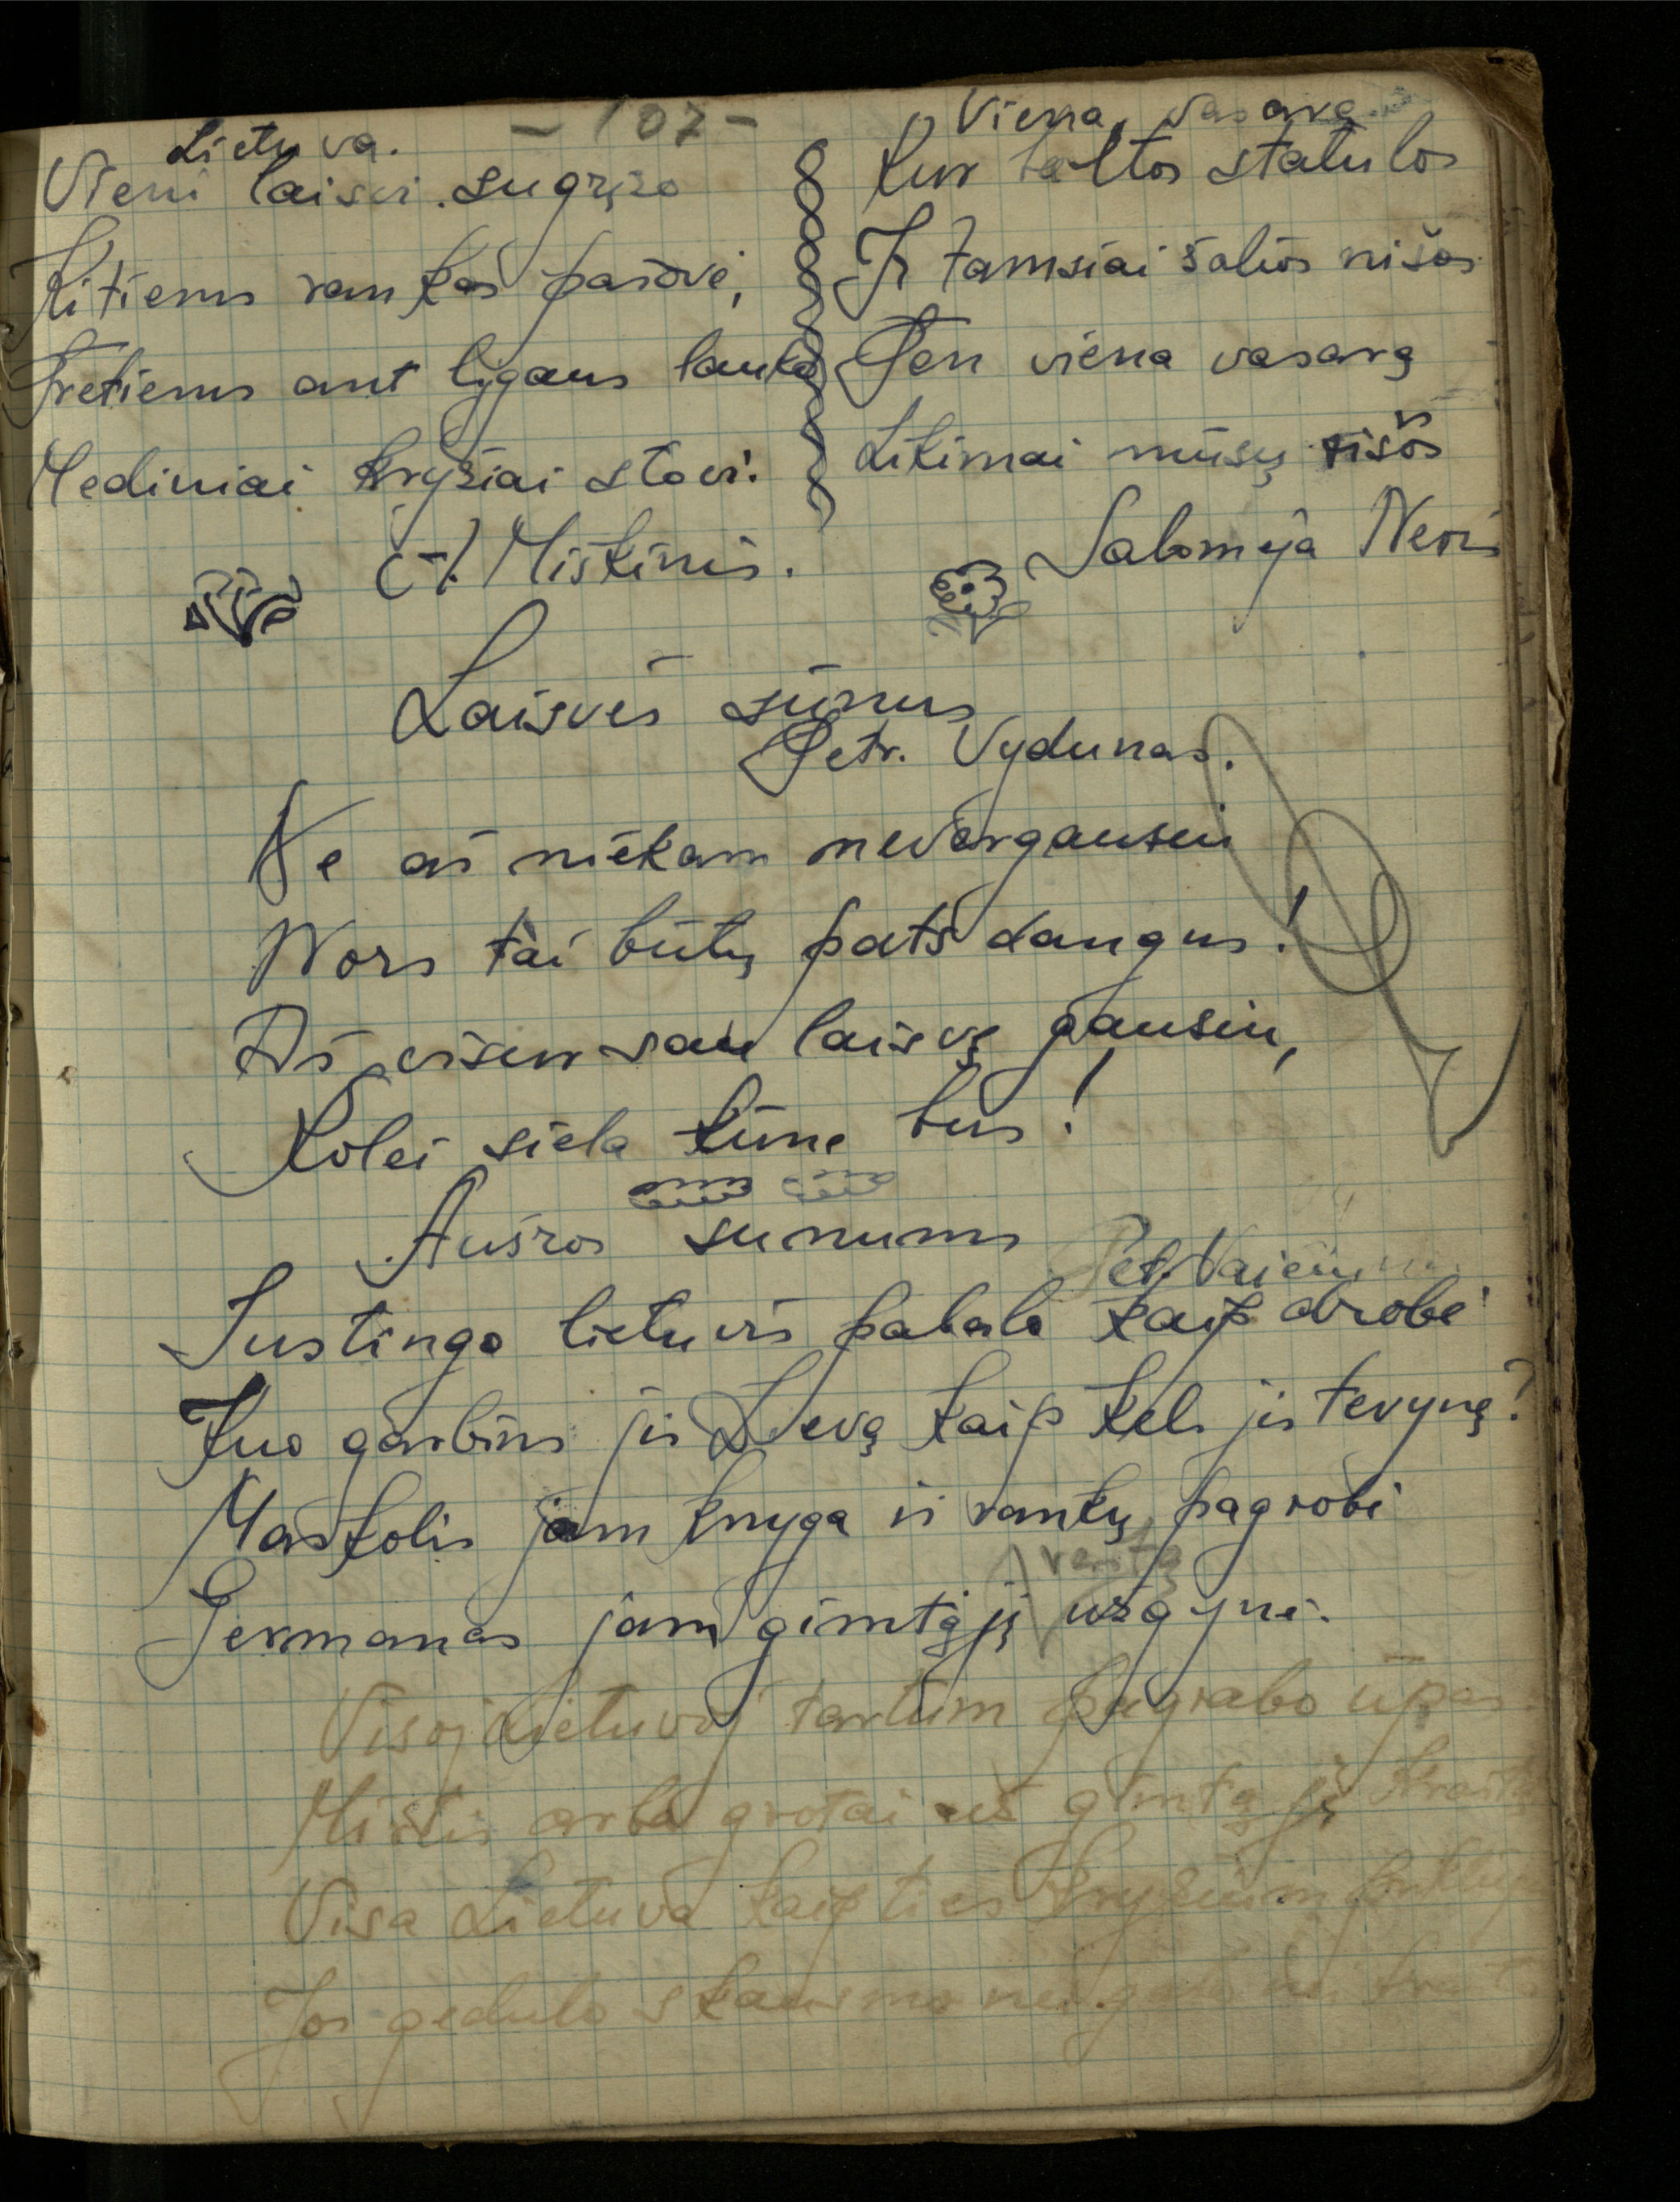 - 107 -
Lietuva.
Vieni laisvi sugrįžo
Kitiems rankas pašovė,
Tretiems ant lygaus lauko
Mediniai kryžiai stovi.
A. Miškinis.
Vieną vasarą
Kur baltos statulos
Ir tamsiai žalios nišos
Ten vieną vasarą
Likimai mūsų rišos
Salomėja Neris
Laisvės sūnus
Petr. Vydunas.
Ne aš niekam nevergausiu
Nors tai būtų pats dangus!
Aš visur sau laisvę gausiu,
Kolei siela kūne bus!
Aušros sunums
Pet. Vaičiūnas
Sustingo lietuvis pabalo kaip drobė
Kuo garbins jis Dievą kaip kels jis tevynę?
Maskolis jam knygą iš rankų pagrobė
raštą
Germanas jam gimtąjį užgynė.
Visoj Lietuvoj tartum pagrabo ūpas
Mirtis arba grotai už gimtąjį raštą
Visa Lietuva kaip ties kryžium
Jos gedulo skausmo nei galo nei